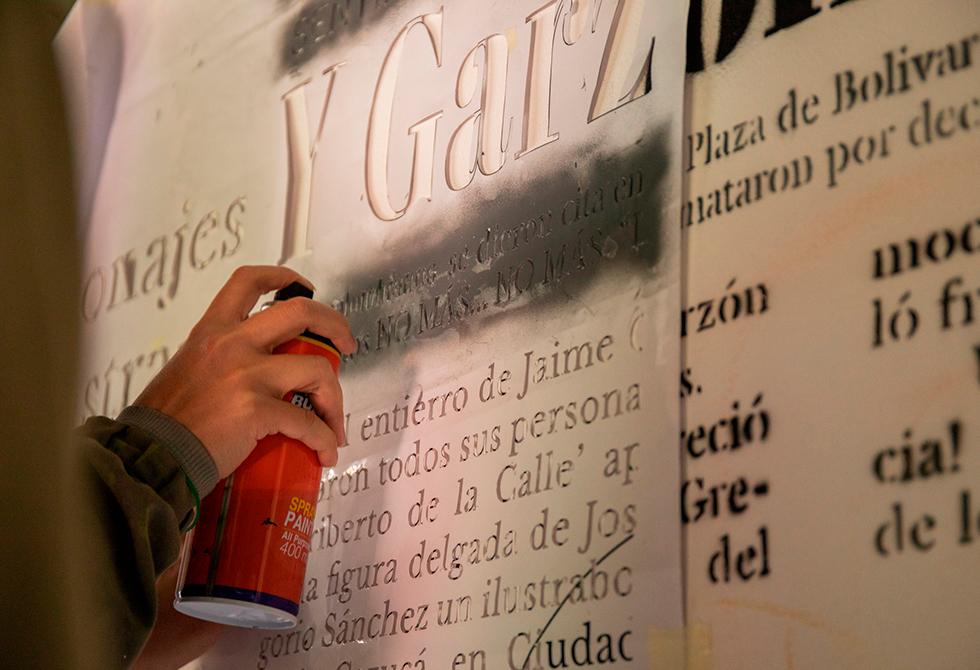 Y Garzó
onajes
se dieron cita en
os NO MÁS... NO MÁS. "L
l entierro de Jaime G
ron todos sus persona
riberto de la Calle' ap
la figura delgada de Jos
gorio Sánchez un ilustrabo
en Ciudad
Plaza de Bolivar
mataron por dec
rzón
s.
reció
Gre-
del
moc
ló fr
cia!
de l
SPRAY
PAINT
All Purpose
400 m